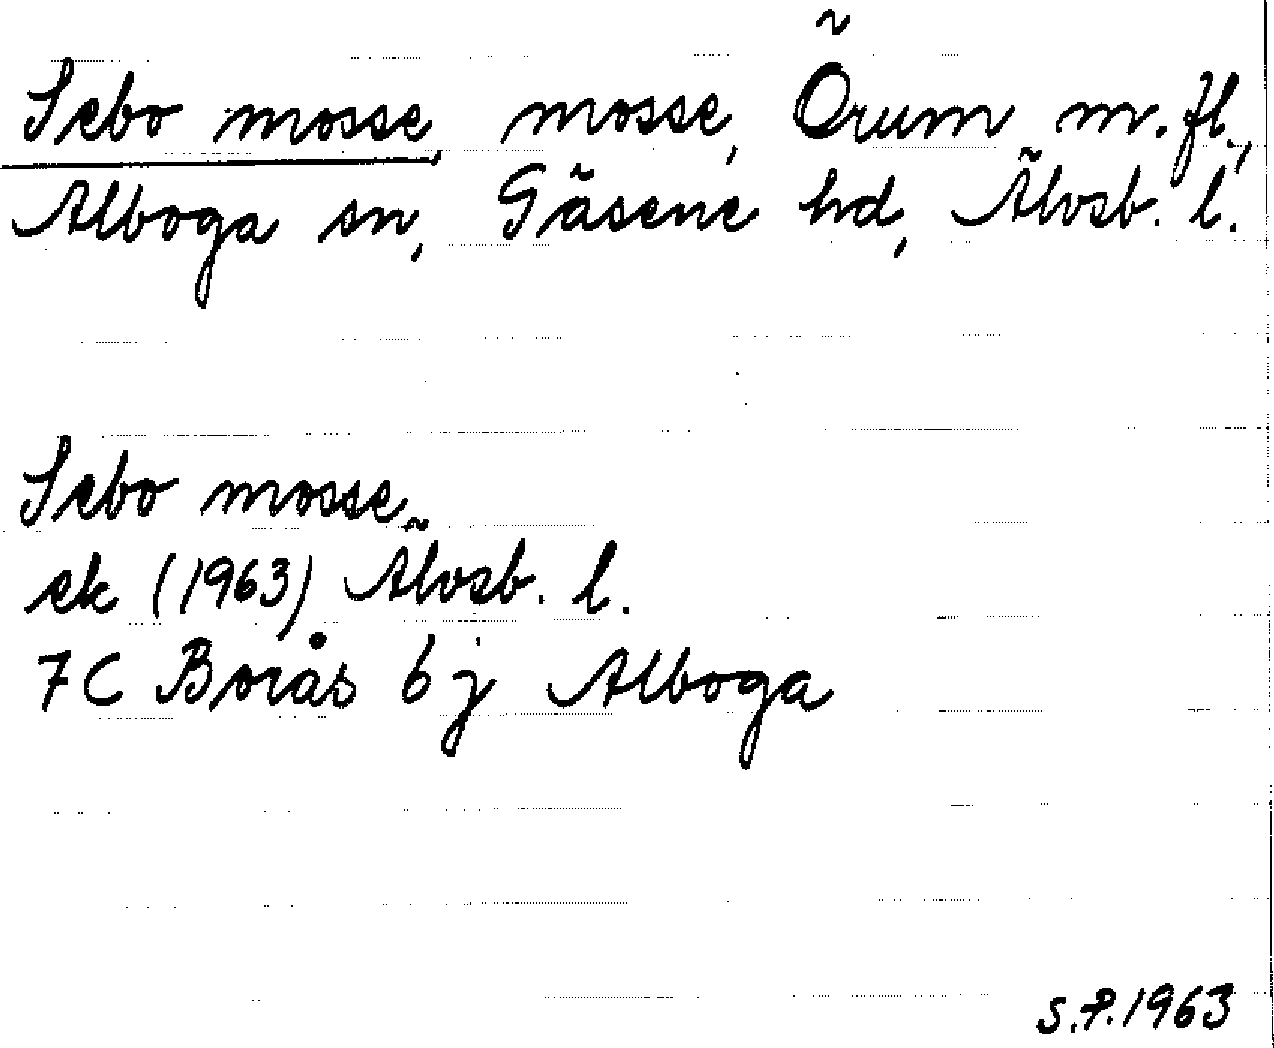 Sebo mosse, mosse, Örum m. fl.,
Alboga sn, Gäsene hd, Älvsb. l.
Sebo mosse
ek (1963) Älvsb. l.
7C Borås 6 j Alboga
S.P. 1963